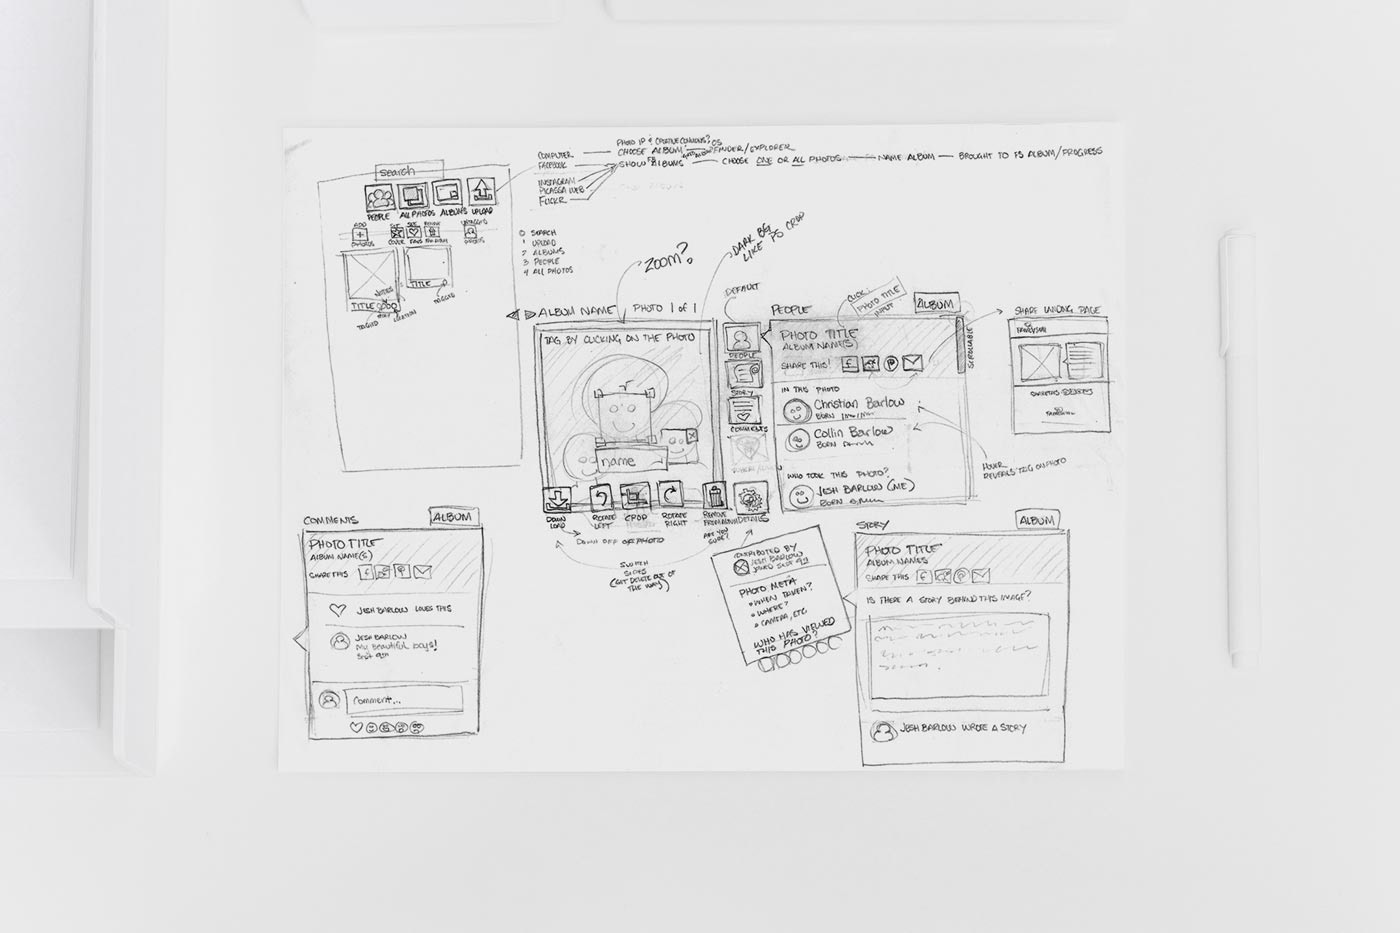 search
PEOPLE
ALL PHOTOS
ALBUMS
UPLOAD
ADD
PHOTOS
SET
COVER
SEE
FAVS
UNTAGGED
TITLE
TITLE
NOTES
TAGGED
STORY
LOCATION
TAGGED
PHOTO IP & CREATIVE COMMONS?
COMPUTER
CHOOSE ALBUM
OS
FINDER/EXPLORER
FACEBOOK
SHOW FB ALBUMS
CHOOSE ONE OR ALL PHOTOS
NAME ALBUM
BROUGHT TO FS ALBUM/PROGRESS
INSTAGRAM
PICASSA WEB
FLICKR
0 SEARCH
1 UPLOAD
2 ALBUMS
3 PEOPLE
4 ALL PHOTOS
ZOOM?
DARK BG
LIKE PS CROP
DEFAULT
ALBUM NAME
PHOTO 1 of 1
TAG BY CLICKING ON THE PHOTO
name
DOWN
LOAD
ROTATE
LEFT
CROP
ROTATE
RIGHT
REMOVE
FROM ALBUM
ARE YOU
SURE?
DETAILS
SWITCH
SIDES
(GET DELETE OUT OF
THE WAY)
PEOPLE
STORY
COMMENTS
PEOPLE
CLICK:
PHOTO TITLE
INPUT
ALBUM
PHOTO TITLE
ALBUM NAMES
SHARE THIS!
SCROLLABLE
IN THIS PHOTO
Christian Barlow
BORN
Collin Barlow
BORN
WHO TOOK THIS PHOTO?
JESH BARLOW (ME)
BORN
HOVER
REVEALS TAG ON PHOTO
SHARE LANDING PAGE
COMMENTS
ALBUM
PHOTO TITLE
ALBUM NAME(S)
SHARE THIS
JESH BARLOW LOVES THIS
JESH BARLOW
My beautiful boys!
Sept 9th
Comment...
DISTRIBUTED BY
JESH BARLOW
PHOTO META
• WHEN TAKEN?
• WHERE?
• CAMERA, ETC
WHO HAS VIEWED
THIS PHOTO?
STORY
ALBUM
PHOTO TITLE
ALBUM NAMES
SHARE THIS
IS THERE A STORY BEHIND THIS IMAGE?
JESH BARLOW WROTE A STORY